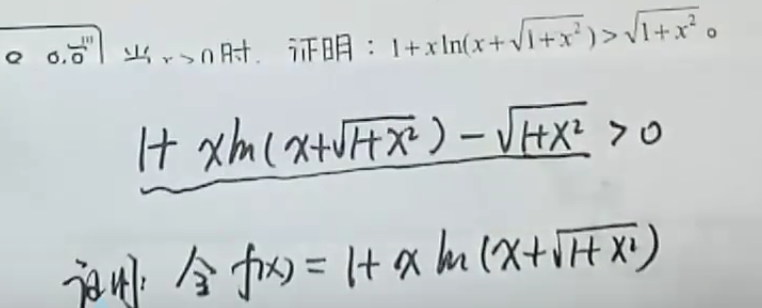 当x>0时, 证明：1+xln(x+√(1+x²))>√(1+x²)。
1+xln(x+√(1+x²))-√(1+x²)>0
证明: 令f(x)=1+xln(x+√(1+x²))